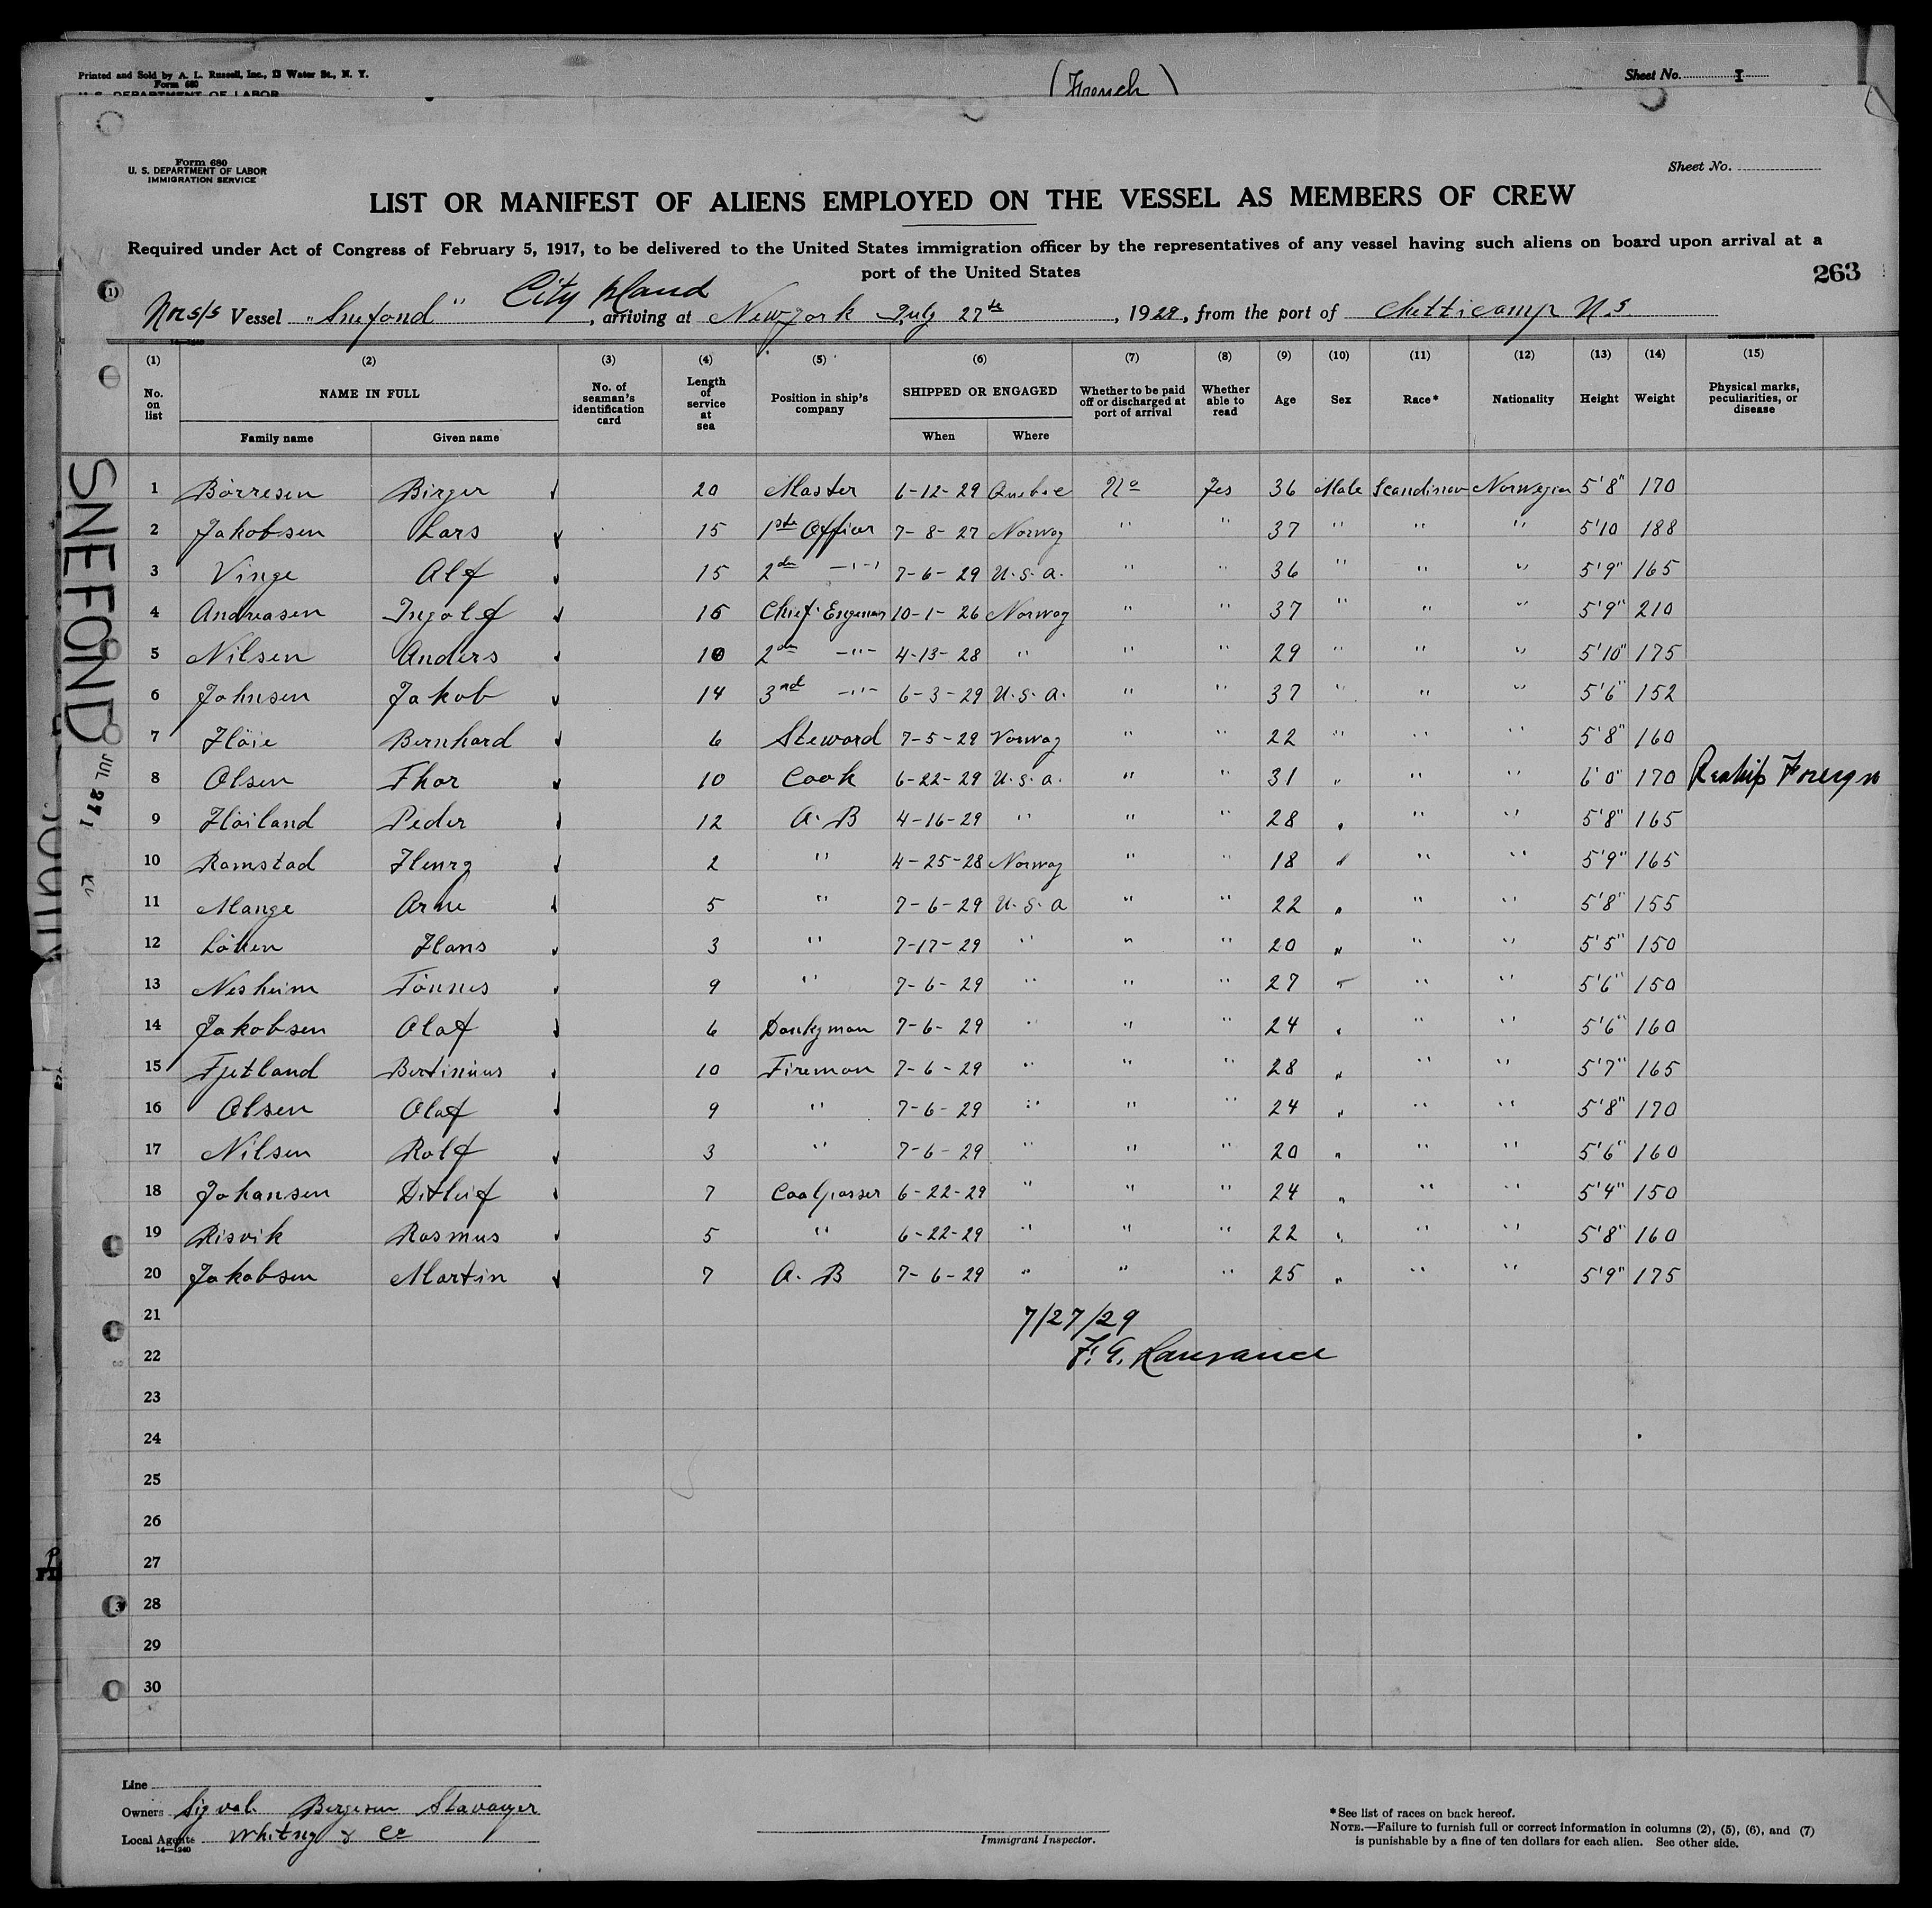 Printed and Sold by A. L. Russell, Inc., 13 Water St., N. Y.
Form 680
U. S. DEPARTMENT OF LABOR
(French)
Sheet No. I
Form 680
U. S. DEPARTMENT OF LABOR
IMMIGRATION SERVICE
Sheet No.
LIST OR MANIFEST OF ALIENS EMPLOYED ON THE VESSEL AS MEMBERS OF CREW
Required under Act of Congress of February 5, 1917, to be delivered to the United States immigration officer by the representatives of any vessel having such aliens on board upon arrival at a
port of the United States
263
City Island
Nor s/s Vessel "Snefond", arriving at New york July 27th, 1929, from the port of Chetticamp N.S.
14-1240
(1) (2) (3) (4) (5) (6) (7) (8) (9) (10) (11) (12) (13) (14) (15)
No. on list NAME IN FULL No. of seaman's identification card Length of service at sea Position in ship's company SHIPPED OR ENGAGED Whether to be paid off or discharged at port of arrival Whether able to read Age Sex Race* Nationality Height Weight Physical marks, peculiarities, or disease
Family name Given name When Where
1 Börresen Birger 20 Master 6-12-29 Quebec No Yes 36 Male Scandinav Norwegian 5'8" 170
2 Jakobsen Lars 15 1ste Officer 7-8-27 Norway " " 37 " " " 5'10 188
3 Vinge Alf 15 2den -"- 7-6-29 U.S.A. " " 36 " " " 5'9" 165
4 Andreasen Ingolf 15 Chief Engeneer 10-1-26 Norway " " 37 " " " 5'9" 210
5 Nilsen Anders 10 2den -"- 4-13-28 " " " 29 " " " 5'10" 175
6 Johnsen Jakob 14 3nd -"- 6-3-29 U.S.A. " " 37 " " " 5'6" 152
7 Höie Bernhard 6 Steward 7-5-29 Norway " " 22 " " " 5'8" 160
8 Olsen Thor 10 Cook 6-22-29 U.S.A. " " 31 " " " 6'0" 170 Reship Foreign
9 Höiland Peder 12 A.B 4-16-29 " " " 28 " " " 5'8" 165
10 Ramstad Henry 2 " 4-25-28 Norway " " 18 " " " 5'9" 165
11 Mange Arne 5 " 7-6-29 U.S.A " " 22 " " " 5'8" 155
12 Hans 3 " 7-17-29 " " " 20 " " " 5'5" 150
13 Nesheim Tönnes 9 " 7-6-29 " " " 27 " " " 5'6" 150
14 Jakobsen Olaf 6 Donkyman 7-6-29 " " " 24 " " " 5'6" 160
15 Fjetland Bertinius 10 Fireman 7-6-29 " " " 28 " " " 5'7" 165
16 Olsen Olaf 9 " 7-6-29 " " " 24 " " " 5'8" 170
17 Nilsen Rolf 3 " 7-6-29 " " " 20 " " " 5'6" 160
18 Johansen Ditleif 7 Coalpasser 6-22-29 " " " 24 " " " 5'4" 150
19 Risvik Rasmus 5 " 6-22-29 " " " 22 " " " 5'8" 160
20 Jakobsen Martin 7 A.B 7-6-29 " " " 25 " " " 5'9" 175
21 7/27/29
22 F. G. Lawrance
23
24
25
26
27
28
29
30
SNEFOND
JUL 27 1
Line
Owners Sigval Bergesen Stavanger
Local Agents Whitny & Co
14-1240
Immigrant Inspector.
*See list of races on back hereof.
NOTE.—Failure to furnish full or correct information in columns (2), (5), (6), and (7)
is punishable by a fine of ten dollars for each alien. See other side.